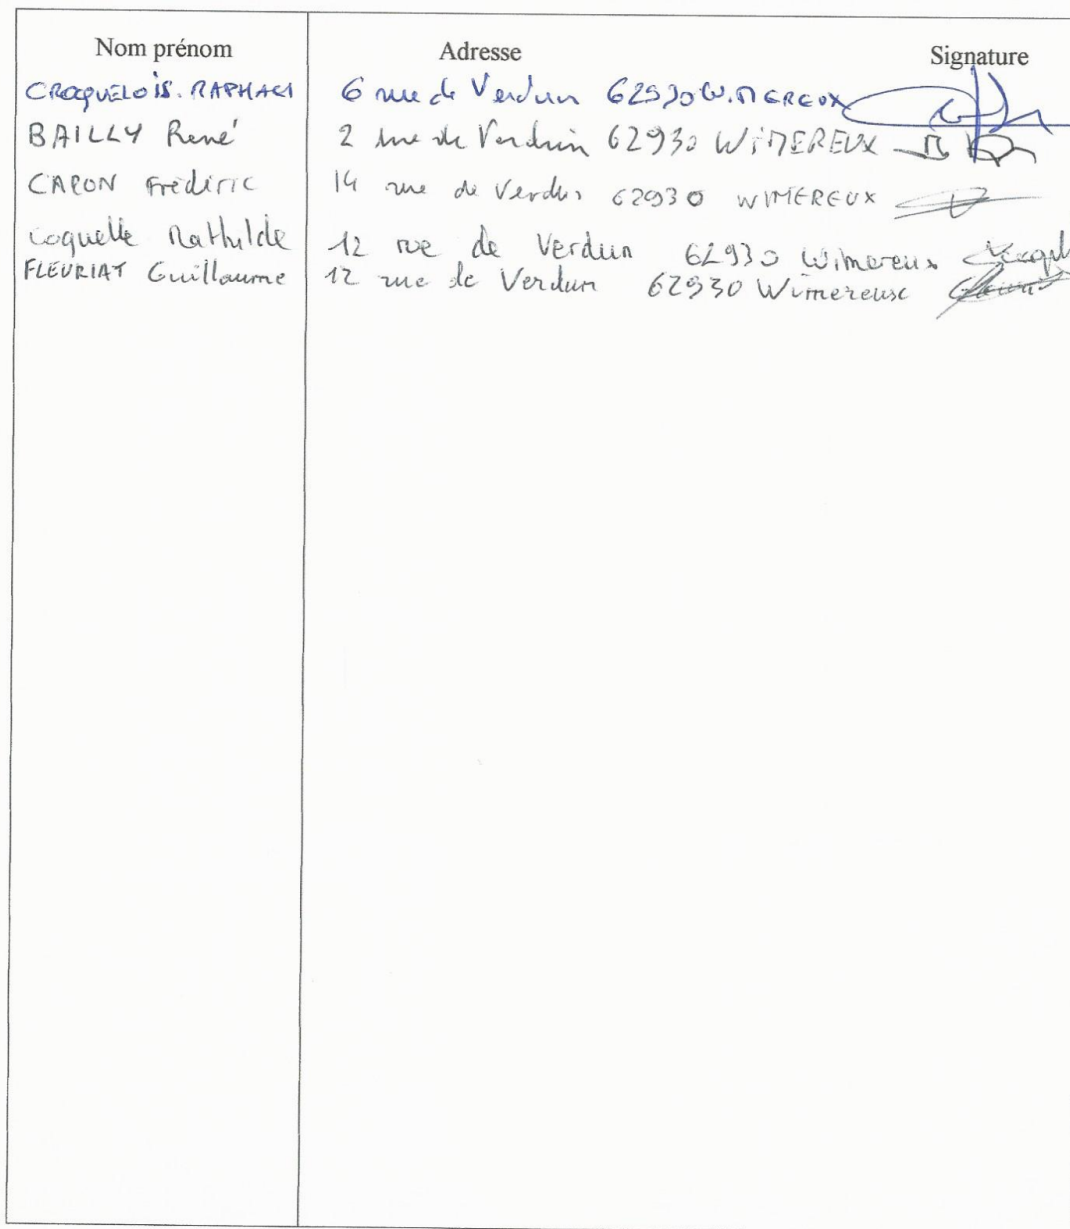 Nom prénom Adresse Signature
CROQUELOIS. RAPHAEL 6 rue de Verdun 62930 WIMEREUX
BAILLY René 2 rue de Verdun 62930 WIMEREUX
CARON Frédéric 14 rue de Verdun 62930 WIMEREUX
Coquelle Mathilde 12 rue de Verdun 62930 Wimereux
FLEURIAT Guillaume 12 rue de Verdun 62930 Wimereux